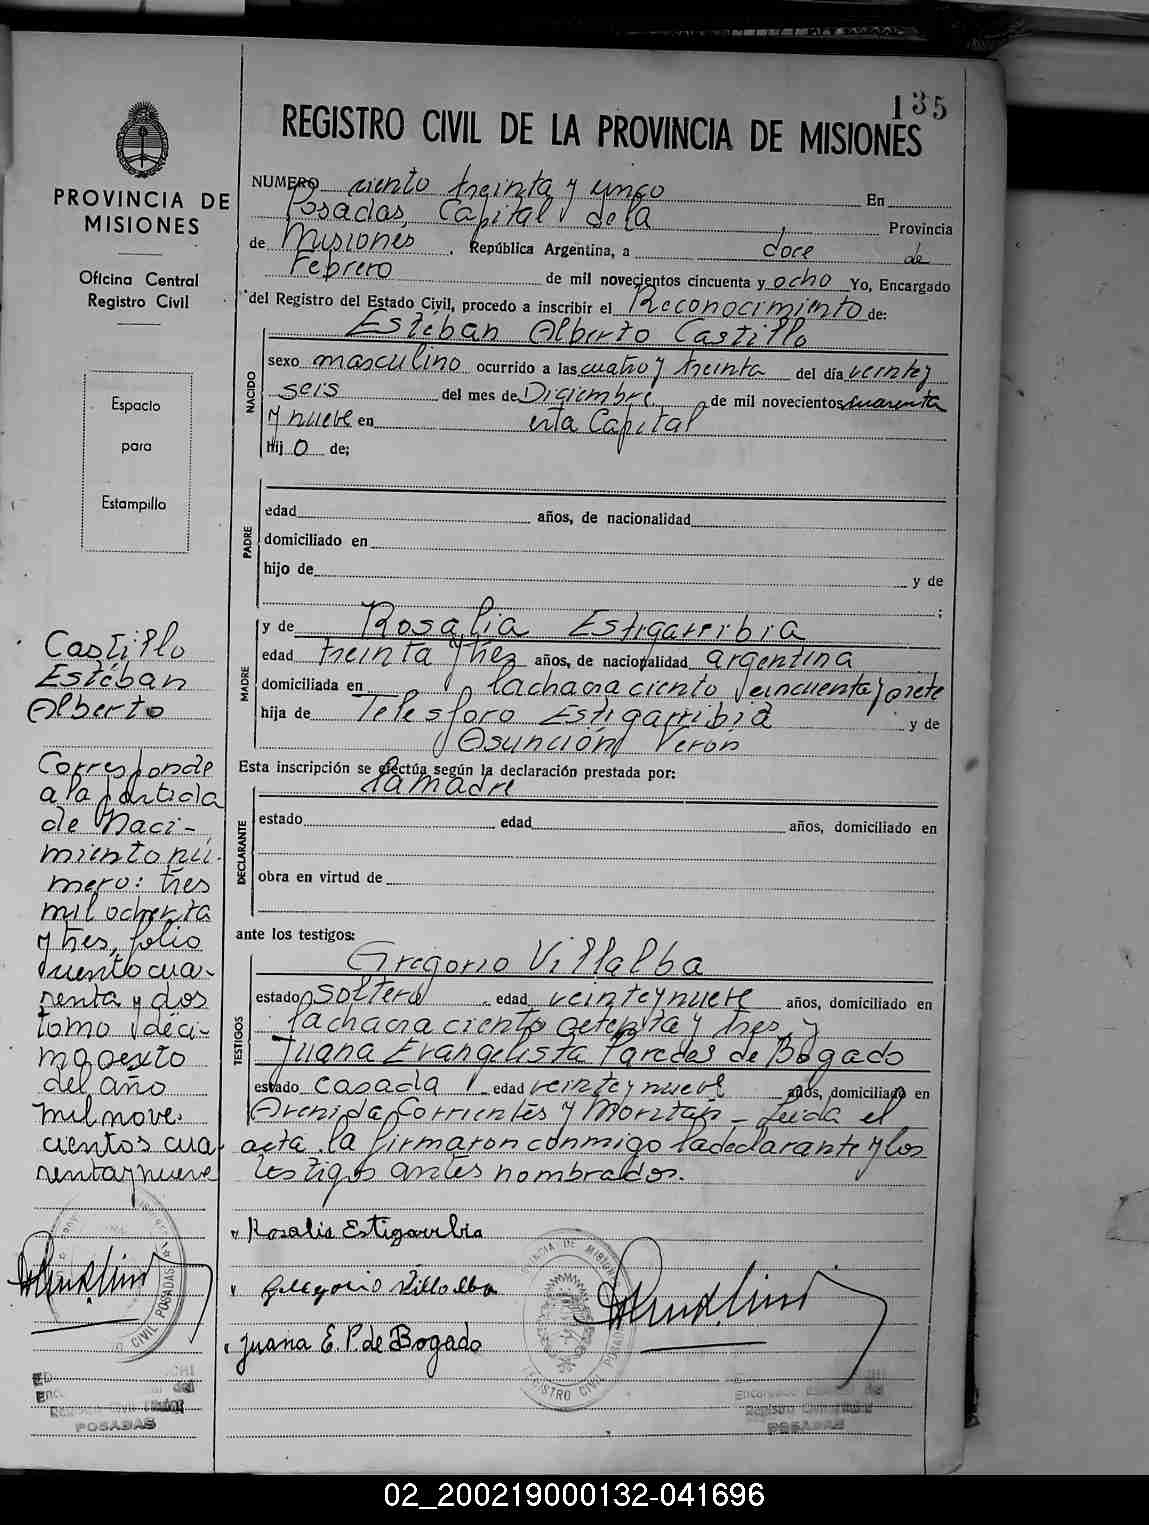 135
REGISTRO CIVIL DE LA PROVINCIA DE MISIONES
PROVINCIA DE
MISIONES
Oficina Central
Registro Civil
Espacio
para
Estampilla
NUMERO ciento treinta y cinco En
Posadas, Capital de la Provincia
de Misiones, República Argentina, a doce de
Febrero de mil novecientos cincuenta y ocho Yo, Encargado
del Registro del Estado Civil, procedo a inscribir el Reconocimiento de:
Esteban Alberto Castillo
NACIDO
sexo masculino ocurrido a las cuatro y treinta del día veinte y
seis del mes de Diciembre de mil novecientos cuarenta
y nueve en esta Capital
hij o de;
PADRE
edad años, de nacionalidad
domiciliado en
hijo de y de
;
MADRE
y de Rosalia Estigarribia
edad treinta y tres años, de nacionalidad argentina
domiciliada en la chacra ciento cincuenta y siete
hija de Telésforo Estigarribia y de
Asunción Verón
Esta inscripción se efectúa según la declaración prestada por:
la madre
DECLARANTE
estado edad años, domiciliado en
obra en virtud de
ante los testigos:
TESTIGOS
Gregorio Villalba
estado soltero edad veinte y nueve años, domiciliado en
la chacra ciento setenta y tres, y
Juana Evangelista Paredes de Bogado
estado casada edad veinte y nueve años, domiciliado en
Avenida Corrientes y Moritán - Leida el
acta, la firmaron conmigo la declarante y los
testigos antes nombrados.
Castillo
Estéban
Alberto
Corresponde
a la partida
de Naci-
miento nú-
mero: tres
mil ochenta
y tres, folio
ciento cua-
renta y dos
tomo déci-
mo sexto
del año
mil nove-
cientos cua-
renta y nueve
Rosalia Estigarribia
Gregorio Villalba
Juana E. P. de Bogado
PROVINCIA DE MISIONES
REGISTRO CIVIL POSADAS
CIVIL POSADAS
Registro Civil
POSADAS
Encargado
Registro Civil
POSADAS
02_200219000132-041696